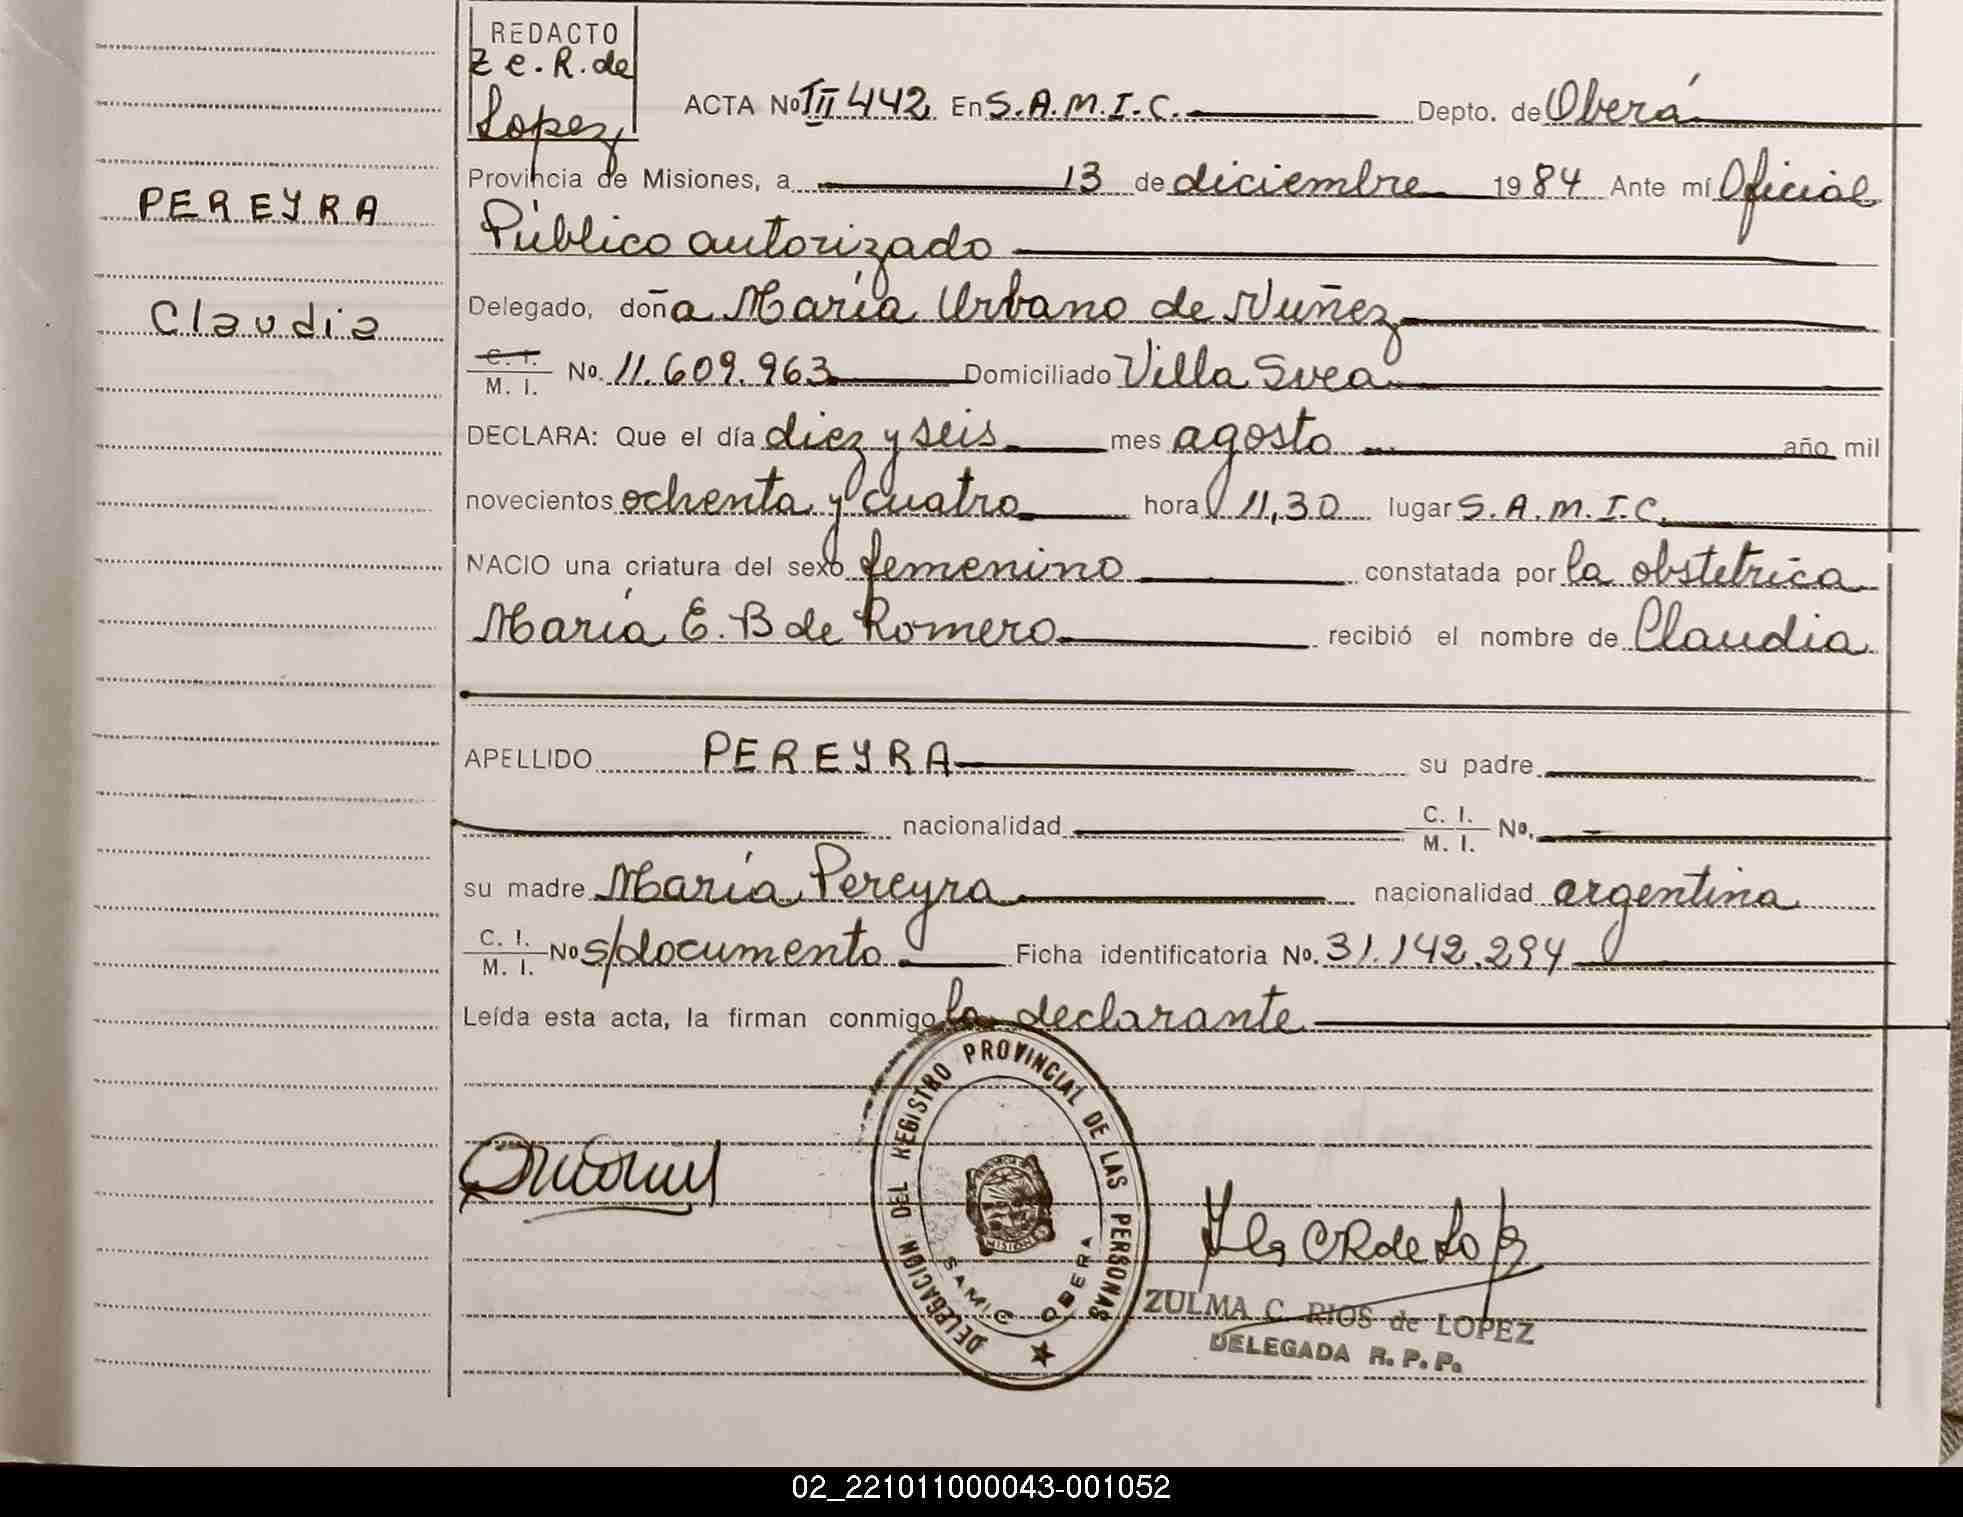 REDACTO
Z C. R. de
Lopez
ACTA No III 442 En S.A.M.I.C. Depto. de Oberá
Provincia de Misiones, a 13 de diciembre 1984 Ante mí Oficial
Público autorizado
PEREYRA
Delegado, doña María Urbano de Nuñez
Claudia
C. I. / M. I. No. 11.609.963 Domiciliado Villa Svea
DECLARA: Que el día diez y seis mes agosto año mil
novecientos ochenta y cuatro hora 11,30 lugar S.A.M.I.C.
NACIO una criatura del sexo femenino constatada por la obstetrica
María E. B de Romero recibió el nombre de Claudia
APELLIDO PEREYRA su padre
nacionalidad C. I. / M. I. No.
su madre María Pereyra nacionalidad argentina
C. I. / M. I. No s/documento Ficha identificatoria No. 31.142.294
Leída esta acta, la firman conmigo la declarante
DELEGACION DEL REGISTRO PROVINCIAL DE LAS PERSONAS
MISIONES
SAMIC OBERA
ZULMA C. RIOS de LOPEZ
DELEGADA R. P. P.
02_221011000043-001052